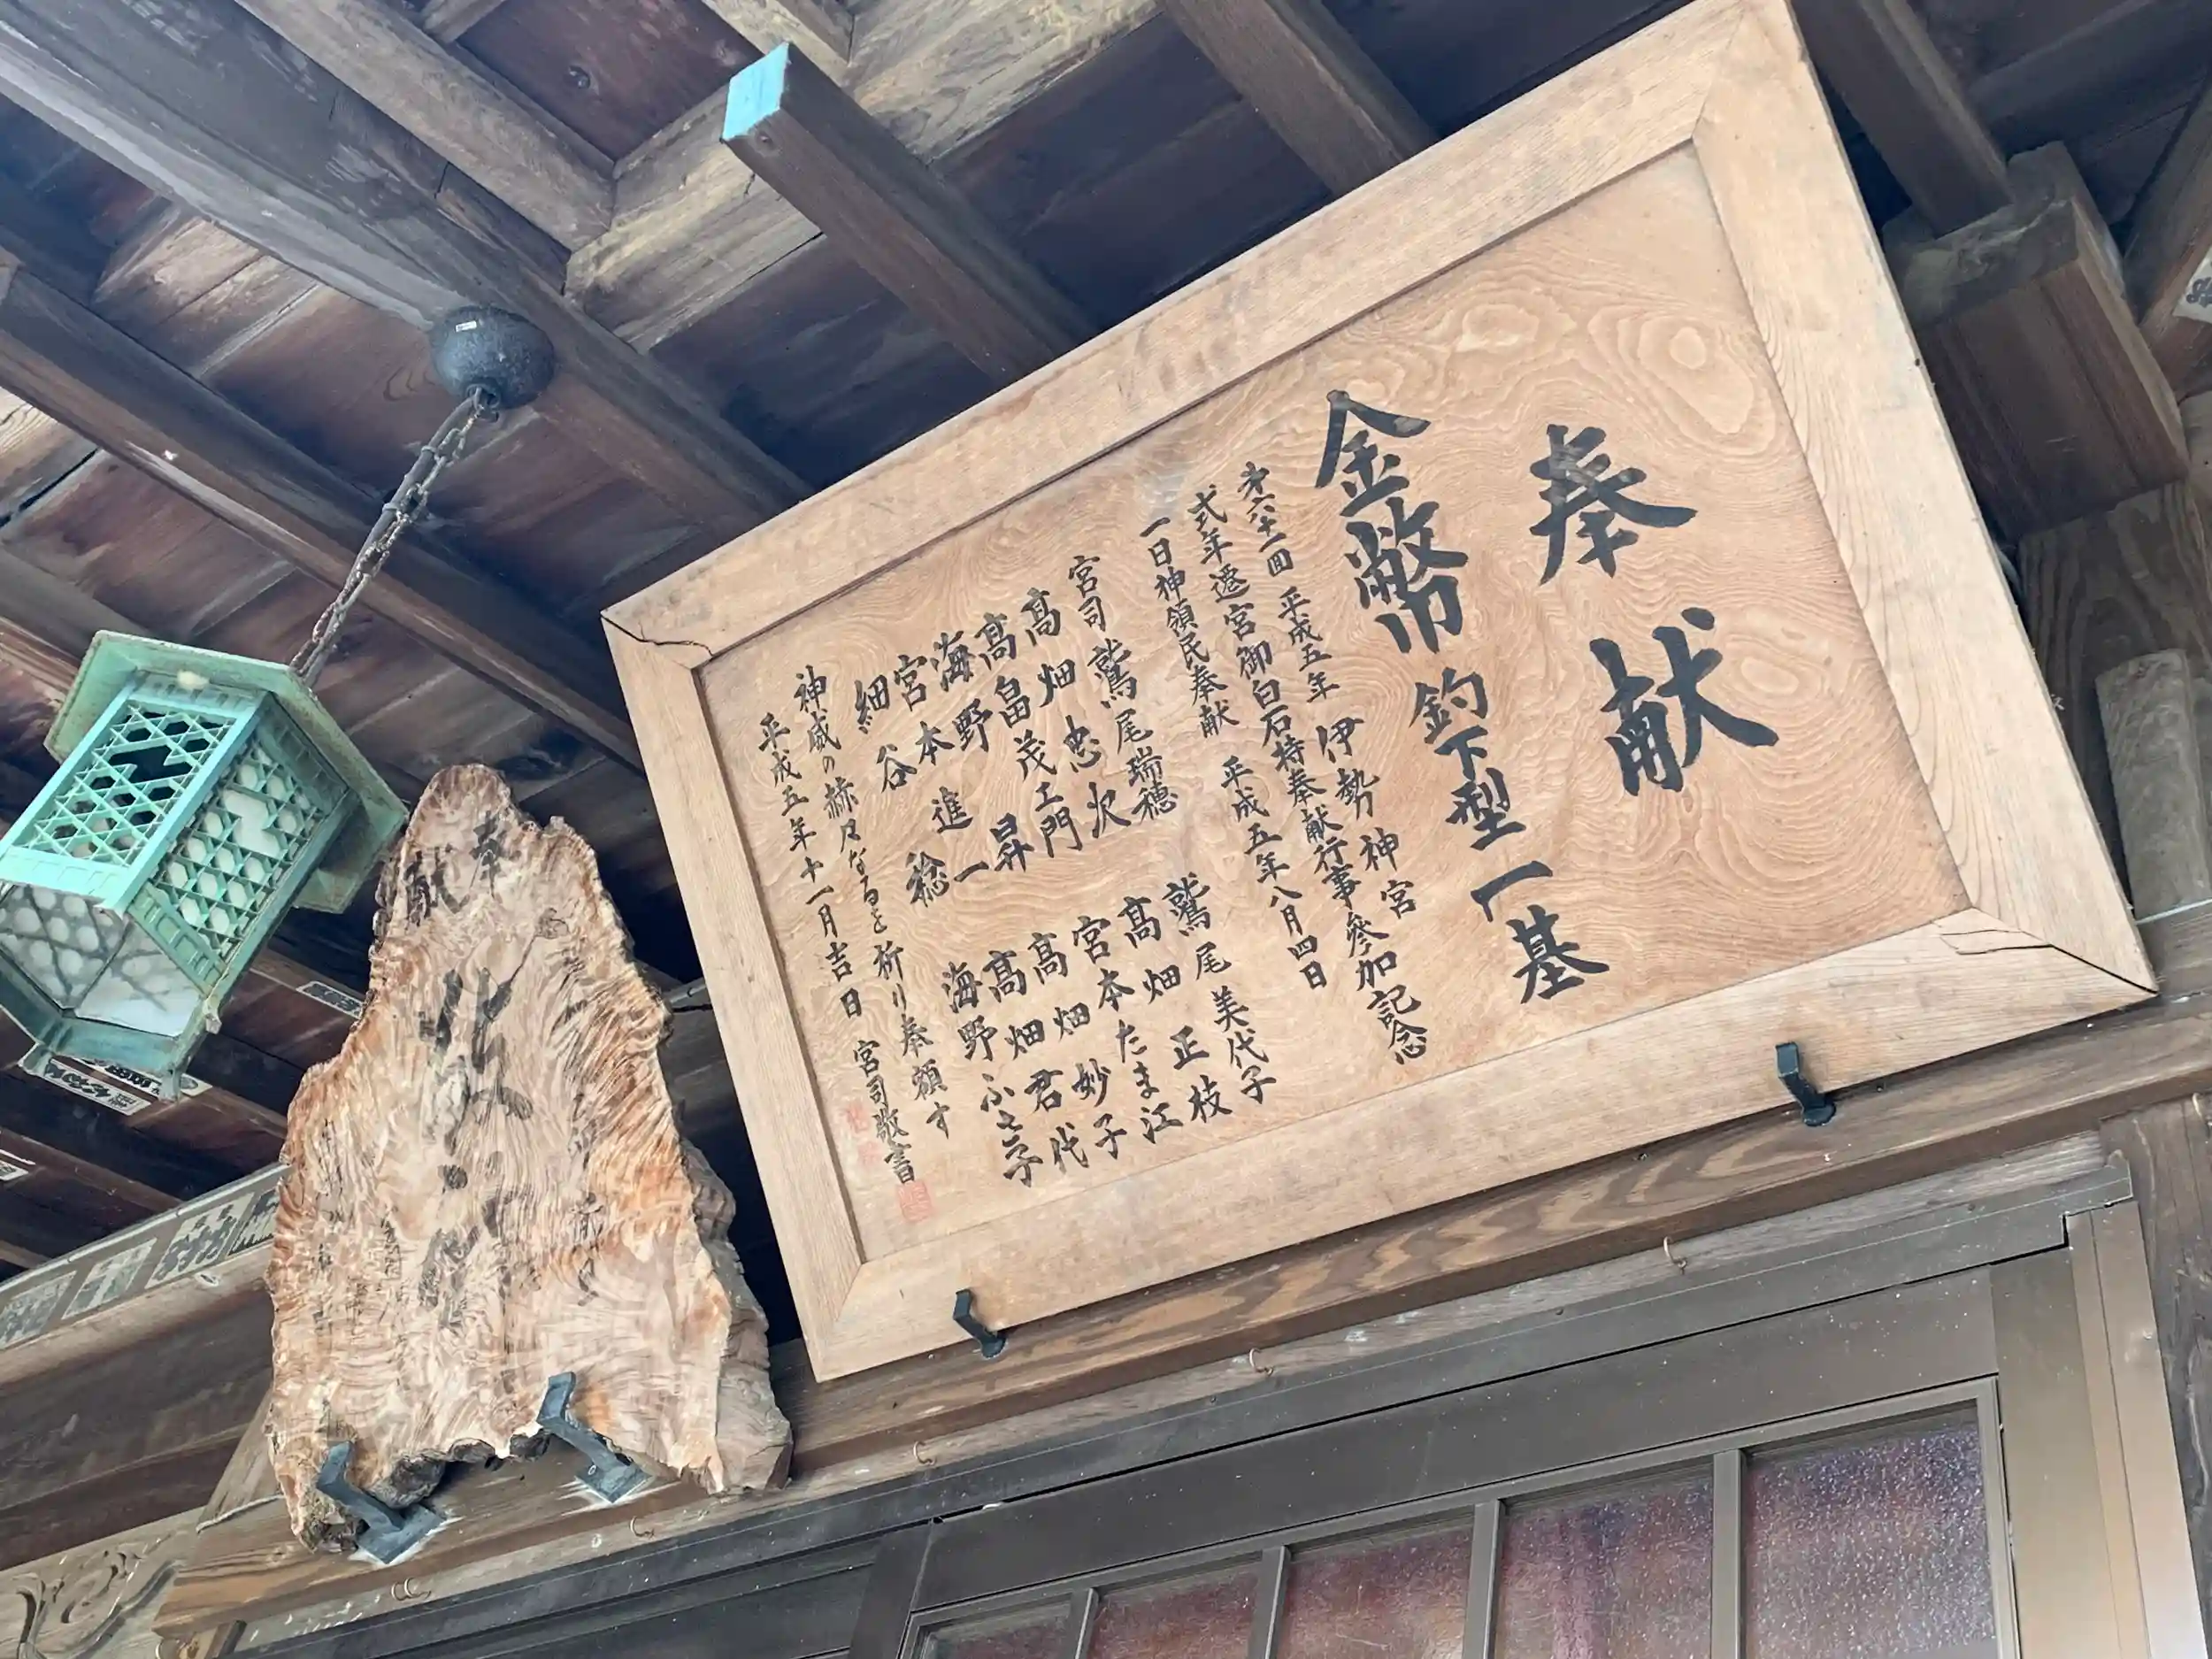 奉献
金幣 釣下型一基
第六十一回 平成五年 伊勢神宮
式年遷宮御白石持奉献行事參加記念
一日神領民奉献 平成五年八月四日
宮司 鷲尾瑞穂 鷲尾美代子
髙畑忠次 髙畑正枝
髙畠茂土門 宮本たま江
海野昇 髙畑妙子
宮本進一 髙畑君代
細谷稔 海野ふさ子
神威の赫々なるを祈り奉額す
平成五年十一月吉日 宮司敬書
奉献